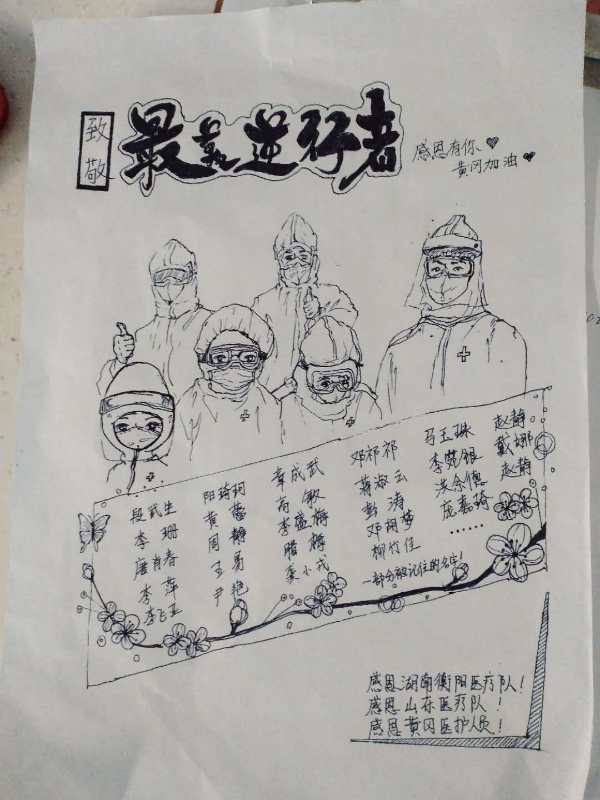 致敬
最美逆行者
感恩有你
黄冈加油
段武生
李 珊
唐肖春
李 萍
李飞
阳琦钶
黄 蕾
周 静
王 勇
尹 艳
章成武
李盛梅
腊 梅
小戎
邓祁祁
蒋淑云
彭 涛
邓翔梦
柳竹佳
马玉珠
李苑银
洪余德
庞嘉琦
……
赵静
戴娜
赵静
一部分被记住的名字!
感恩湖南衡阳医疗队!
感恩山东医疗队!
感恩黄冈医护人员!